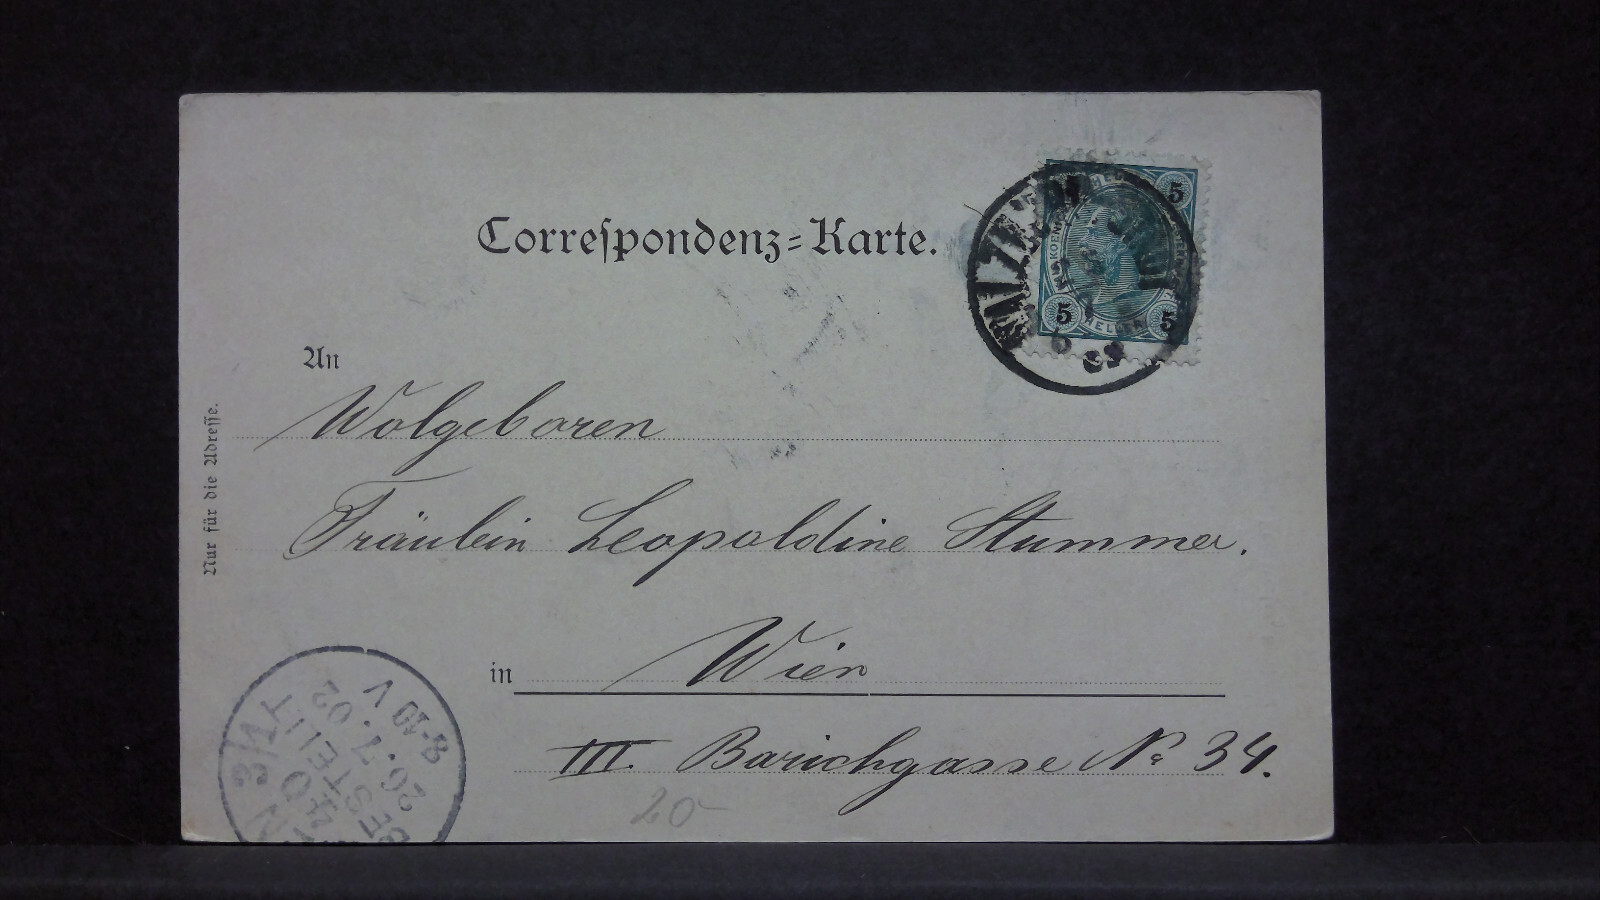 Correspondenz=Karte.
5
5
5
HELLER
An
Wolgeboren
Fräulein Leopoldine Stummer.
in Wien
III. Barichgasse No 34.
20-
Nur für die Adresse.
3/1
40
BESTELLT
26.7.02
8-10 V